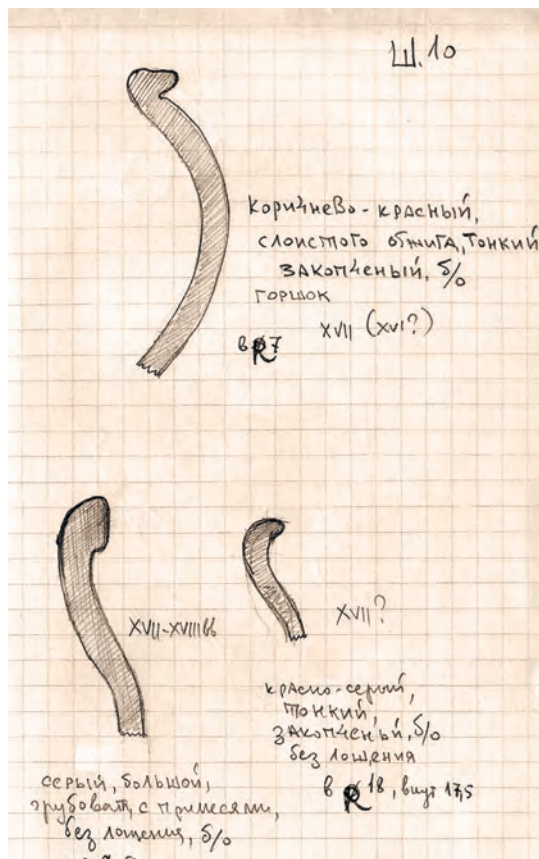 Ш.10
коричнево-красный,
слоистого обжига, тонкий
закопченый, б/о
горшок
XVII (XVI?)
в R 7
XVII-XVIII вв
XVII?
красно-серый,
тонкий,
закопченый, б/о
без лощения
в R 18, внут 17,5
серый, большой,
грубоват, с примесями,
без лощения, б/о